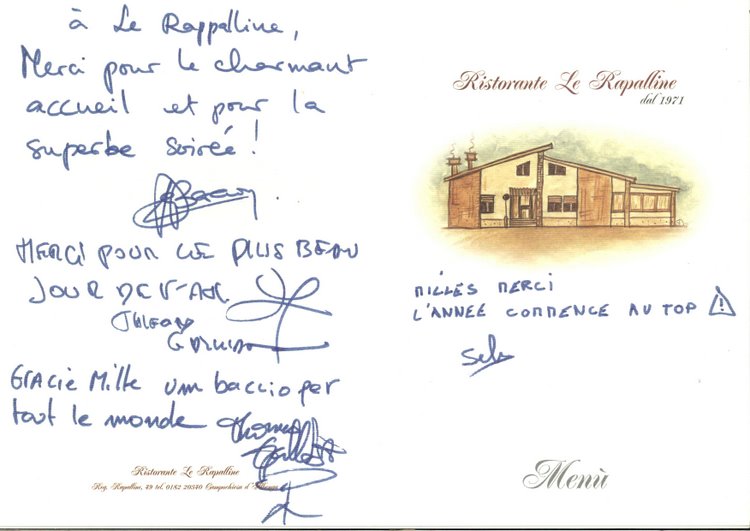 à Le Rappalline,
Merci pour le charmant
accueil et pour la
superbe soirée!
MERCI POUR LE PLUS BEAU
JOUR DE L'AN
GRACIE Mille um baccio per
tout le monde
Thomas
Ristorante Le Rapalline
Reg. Rapalline, 49 tel. 0182 20340 Campochiesa d'Albenga
Ristorante Le Rapalline
dal 1971
MILLES MERCI
L'ANNEE COMMENCE AU TOP !
Menù